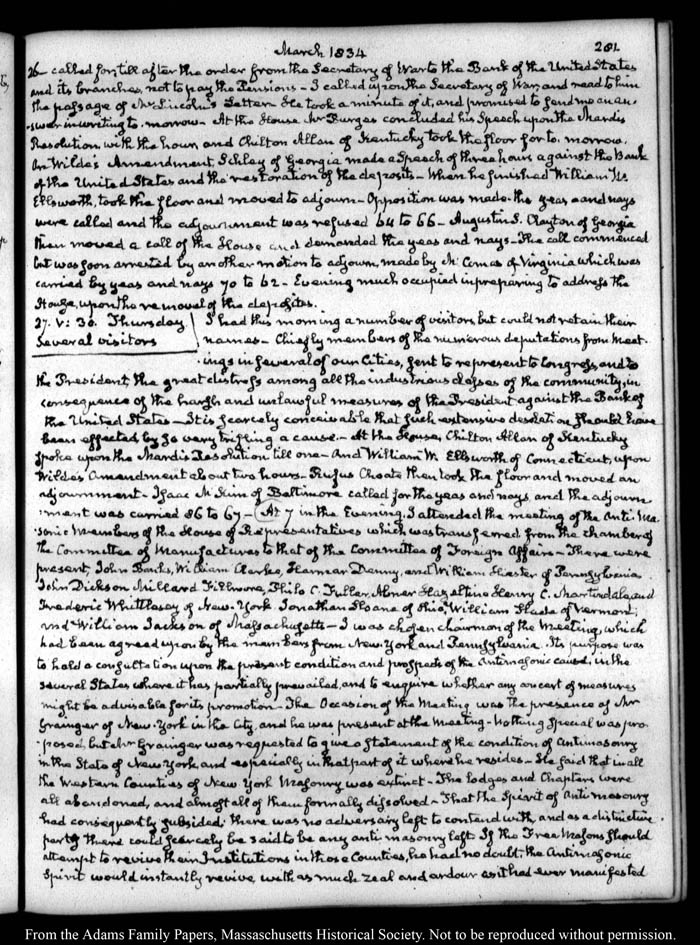 March 1834
281
26— called for, till after the order from the Secretary of War to the Bank of the United States
and its branches, not to pay the Pensions— I called upon the Secretary of War, and read to him
the passage of Mr Lincoln's Letter. He took a minute of it, and promised to send me an an-
swer in writing to-morrow— At the House Mr Burges concluded his Speech upon the Mardis
Resolution with the hour, and Chilton Allan of Kentucky took the floor for to-morrow.
On Wilde's Amendment, Schley of Georgia made a Speech of three hours against the Bank
of the United States and the restoration of the deposits— When he finished William W.
Ellsworth, took the floor and moved to adjourn— Opposition was made— the yeas and nays
were called and the adjournment was refused 64 to 66— Augustin S. Clayton of Georgia
then moved a call of the House and demanded the yeas and nays— The call commenced
but was soon arrested by another motion to adjourn, made by McComas of Virginia which was
carried by yeas and nays 70 to 62— Evening much occupied in preparing to address the
House, upon the removal of the deposites.
27. V: 30. Thursday
Several visitors
I had this morning a number of visitors but could not retain their
names— Chiefly members of the numerous deputations from meet-
ings in several of our Cities, sent to represent to Congress, and to
the President the great distress among all the industrious classes of the community, in
consequence of the harsh and unlawful measures of the President against the Bank of
the United States— It is scarcely conceivable that such extensive desolation should have
been effected by so very trifling a cause— At the House, Chilton Allan of Kentucky
spoke upon the Mardis Resolution till one— And William W. Ellsworth of Connecticut, upon
Wilde's Amendment about two hours— Rufus Choate then took the floor and moved an
adjournment— Isaac McKim of Baltimore called for the yeas and nays, and the adjourn-
ment was carried 86 to 67— At 7 in the Evening, I attended the meeting of the Anti-Ma-
sonic Members of the House of Representatives which was transferred from the chamber of
the Committee of Manufactures to that of the Committee of Foreign Affairs— There were
present, John Banks, William Clarke, Harmar Denny, and William Hiester of Pennsylvania
John Dickson Millard Fillmore, Philo C. Fuller, Abner Hazeltine Henry C. Martindale, and
Frederic Whittlesey of New-York Jonathan Sloane of Ohio, William Slade of Vermont,
and William Jackson of Massachusetts— I was chosen chairman of the Meeting, which
had been agreed upon by the members from New York and Pennsylvania. Its purpose was
to hold a consultation upon the present condition and prospects of the Antimasonic cause, in the
several States where it has partially prevailed, and to enquire whether any concert of measures
might be advisable for its promotion— The Occasion of the Meeting was the presence of Mr
Grainger of New-York in the City, and he was present at the meeting— Nothing Special was pro-
posed, but Mr Grainger was requested to give a Statement of the condition of Antimasonry
in the State of New York, and especially in that part of it where he resides— He said that in all
the Western Counties of New York Masonry was extinct— The lodges and Chapters were
all abandoned, and almost all of them formally dissolved— That the Spirit of Antimasonry
had consequently subsided, there was no adversary left to contend with, and as a distinctive
party there could scarcely be said to be any anti-masonry left. If the Free Masons should
attempt to revive their Institutions in those Counties, he had no doubt the Antimasonic
Spirit would instantly revive, with as much zeal and ardour as it had ever manifested
From the Adams Family Papers, Massachusetts Historical Society. Not to be reproduced without permission.